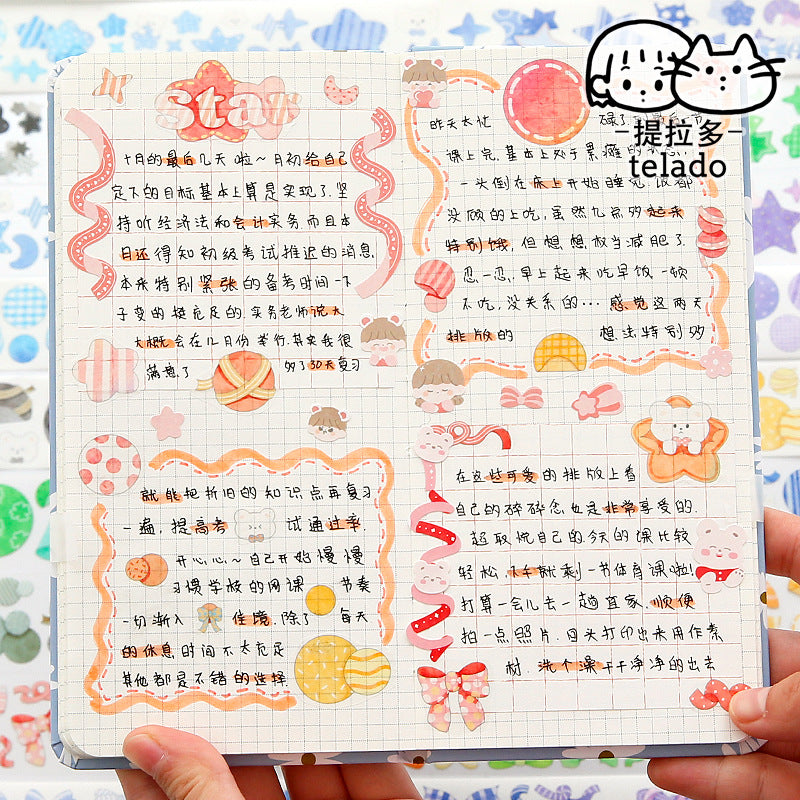 star
十月的最后几天啦~月初给自己
定下的目标基本上算是实现了.坚
持听经济法和会计实务.而且本
日还得知初级考试推迟的消息.
本来特别紧张的备考时间一下
子变的挺充足的.实务老师说大
大概会在几月份举行.其实我很
满意了 多了30天复习
就能把折旧的知识点再复习
一遍,提高考试通过率.
开心心~自己开始慢慢
习惯学校的网课 节奏
一切渐入佳境.除了每天
的休息时间不太充足
其他都是不错的选择.
昨天太忙 碌了
课上完.基本上处于累瘫的
一头倒在床上开始睡觉 饭都
没顾的上吃,虽然九点多起来
特别饿,但想想权当减肥了
忍一忍,早上起来吃早饭 一顿
不吃,没关系的...感觉这两天
排版的 想法特别多
在这些可爱的排版上看
自己的碎碎念也是非常享受的.
超取悦自己的 今天的课比较
轻松,下午就剩一节体育课啦!
打算一会儿去一趟宜家.顺便
拍一点照片.回头打印出来用作素
材.洗个澡干干净净的出去
-提拉多-
telado